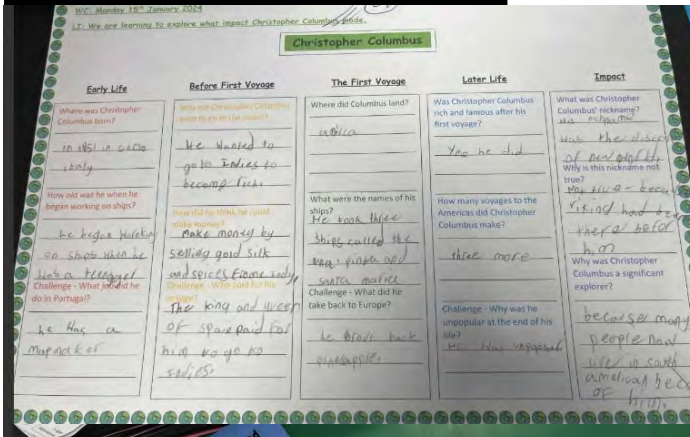 WC: Monday 15th January 2024
LI: We are learning to explore what impact Christopher Columbus made.
Christopher Columbus
Early Life
Where was Christopher
Columbus born?
in 1451 in
italy
How old was he when he
began working on ships?
he began
on ships when he
was a
Challenge - What job did he
do in Portugal?
he was a
mapmaker
Before First Voyage
Why did Christopher Columbus
want to go to the Indies?
He wanted to
go to Indies to
become rich.
How did he think he could
make money?
Make money by
selling gold silk
and spices
Challenge - Who paid for his
voyage?
The king and
of paid for
him to go to
indies.
The First Voyage
Where did Columbus land?
What were the names of his
ships?
He took three
ships called the
and
santa
Challenge - What did he
take back to Europe?
he back
pineapples
Later Life
Was Christopher Columbus
rich and famous after his
first voyage?
Yes he did
How many voyages to the
Americas did Christopher
Columbus make?
three more
Challenge - Why was he
unpopular at the end of his
life?
He was
Impact
What was Christopher
Columbus' nickname?
His
was the
of new world.
Why is this nickname not
true?
Not true -
viking had
there
him
Why was Christopher
Columbus a significant
explorer?
many
people now
in south
of him.